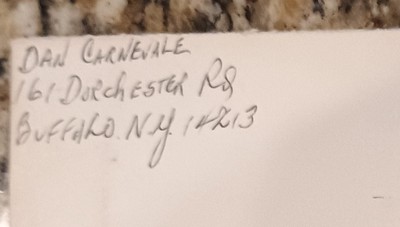 DAN CARNEVALE
161 DORCHESTER Rd
BUFFALO. N.Y. 14213